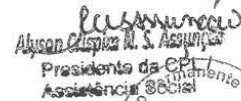 Alyson Crispim N. S. Assunção
Presidente da CPL/
Assistência Social
manente